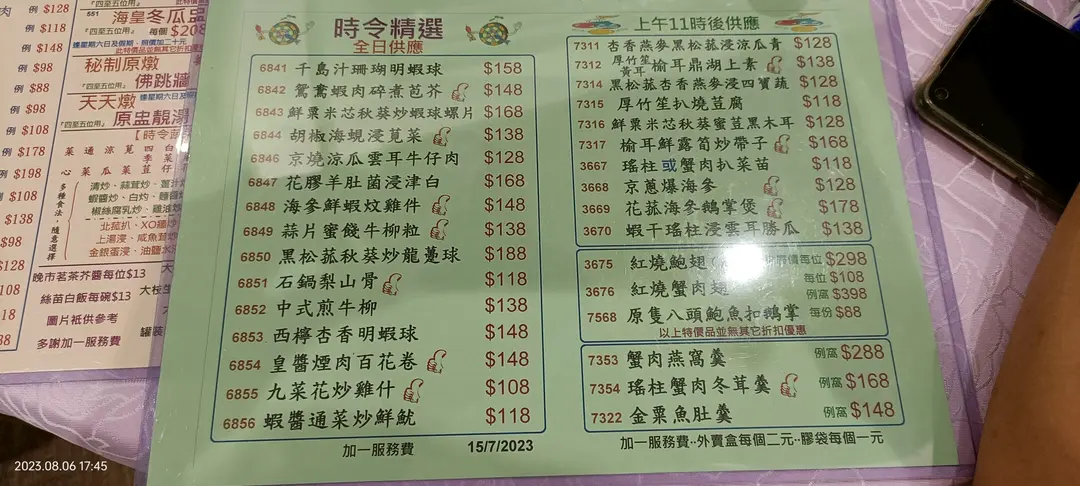 例 $128
例 $118
例 $148
例 $98
例 $88
例 $98
例 $108
例 $178
$198
$108
$138
$98
$128
『四至五位用』
551
海皇冬瓜盅
『四至五位用』 每個 $208
逢星期六日及假期，照價加二十元
此特價品並無其它折扣優惠
秘制原燉
佛跳牆
『四至五位用』
天天燉
逢星期六日及
原盅靚湯
『四至五位用』
【時令蔬
菜通莧四白
心菜瓜菜荳仔
多種食法，隨意選擇
清炒、蒜茸炒、薑汁
蝦醬炒、白灼、麵醬
椒絲腐乳炒、雞油
北菰扒、XO醬炒
上湯浸、咸魚茸炒
金銀蛋浸、油鹽水
晚市茗茶芥醬每位$13
絲苗白飯每碗$13
圖片衹供參考
多謝加一服務費
罐裝
時令精選
全日供應
6841 千島汁珊瑚明蝦球 $158
6842 鴛鴦蝦肉碎煮芭芥 $148
6843 鮮粟米芯秋葵炒蝦球螺片 $168
6844 胡椒海蜆浸莧菜 $138
6846 京燒涼瓜雲耳牛仔肉 $128
6847 花膠羊肚菌浸津白 $168
6848 海參鮮蝦炆雞件 $148
6849 蒜片蜜餞牛柳粒 $138
6850 黑松菰秋葵炒龍躉球 $188
6851 石鍋梨山骨 $118
6852 中式煎牛柳 $138
6853 西檸杏香明蝦球 $148
6854 皇醬煙肉百花卷 $148
6855 九菜花炒雞什 $108
6856 蝦醬通菜炒鮮魷 $118
加一服務費 15/7/2023
上午11時後供應
7311 杏香燕麥黑松菰浸涼瓜青 $128
7312 厚竹笙黃耳榆耳鼎湖上素 $138
7314 黑松菰杏香燕麥浸四寶蔬 $128
7315 厚竹笙扒燒荳腐 $118
7316 鮮粟米芯秋葵蜜荳黑木耳 $128
7317 榆耳鮮露筍炒帶子 $168
3667 瑤柱或蟹肉扒菜苗 $118
3668 京蔥爆海參 $128
3669 花菰海參鵝掌煲 $178
3670 蝦干瑤柱浸雲耳勝瓜 $138
3675 紅燒鮑翅 每位 $298
3676 紅燒蟹肉翅 每位 $108
例窩 $398
7568 原隻八頭鮑魚扣鵝掌 每份 $88
以上特價品並無其它折扣優惠
7353 蟹肉燕窩羹 例窩 $288
7354 瑤柱蟹肉冬茸羹 例窩 $168
7322 金粟魚肚羹 例窩 $148
加一服務費··外賣盒每個二元··膠袋每個一元
2023.08.06 17:45